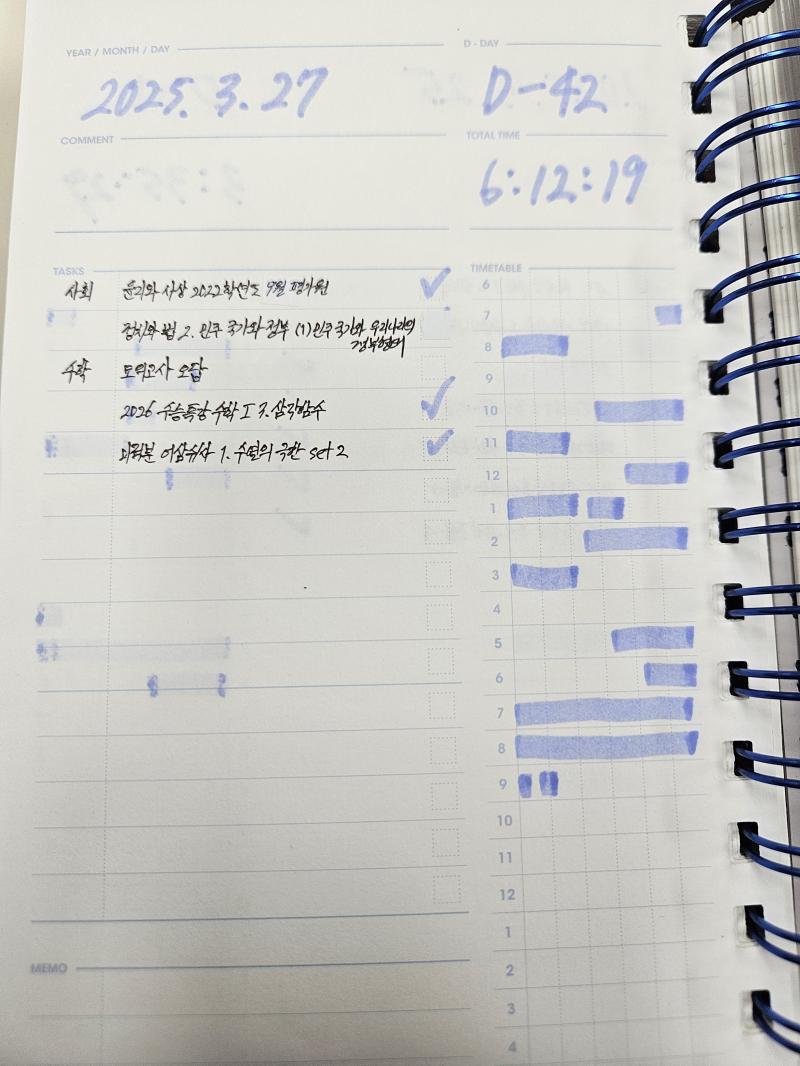 YEAR / MONTH / DAY
D-DAY
2025. 3. 27
D-42
COMMENT
TOTAL TIME
6:12:19
TASKS
TIMETABLE
사회 윤리와 사상 2022학년도 9월 평가원
정치와 법 2. 민주 국가와 정부 (1) 민주 국가와 우리나라의
정부형태
수학 모의고사 오답
2026 수능특강 수학 I 7. 삼각함수
미적분 1. 수열의 극한 set 2
6
7
8
9
10
11
12
1
2
3
4
5
6
7
8
9
10
11
12
1
2
3
4
MEMO